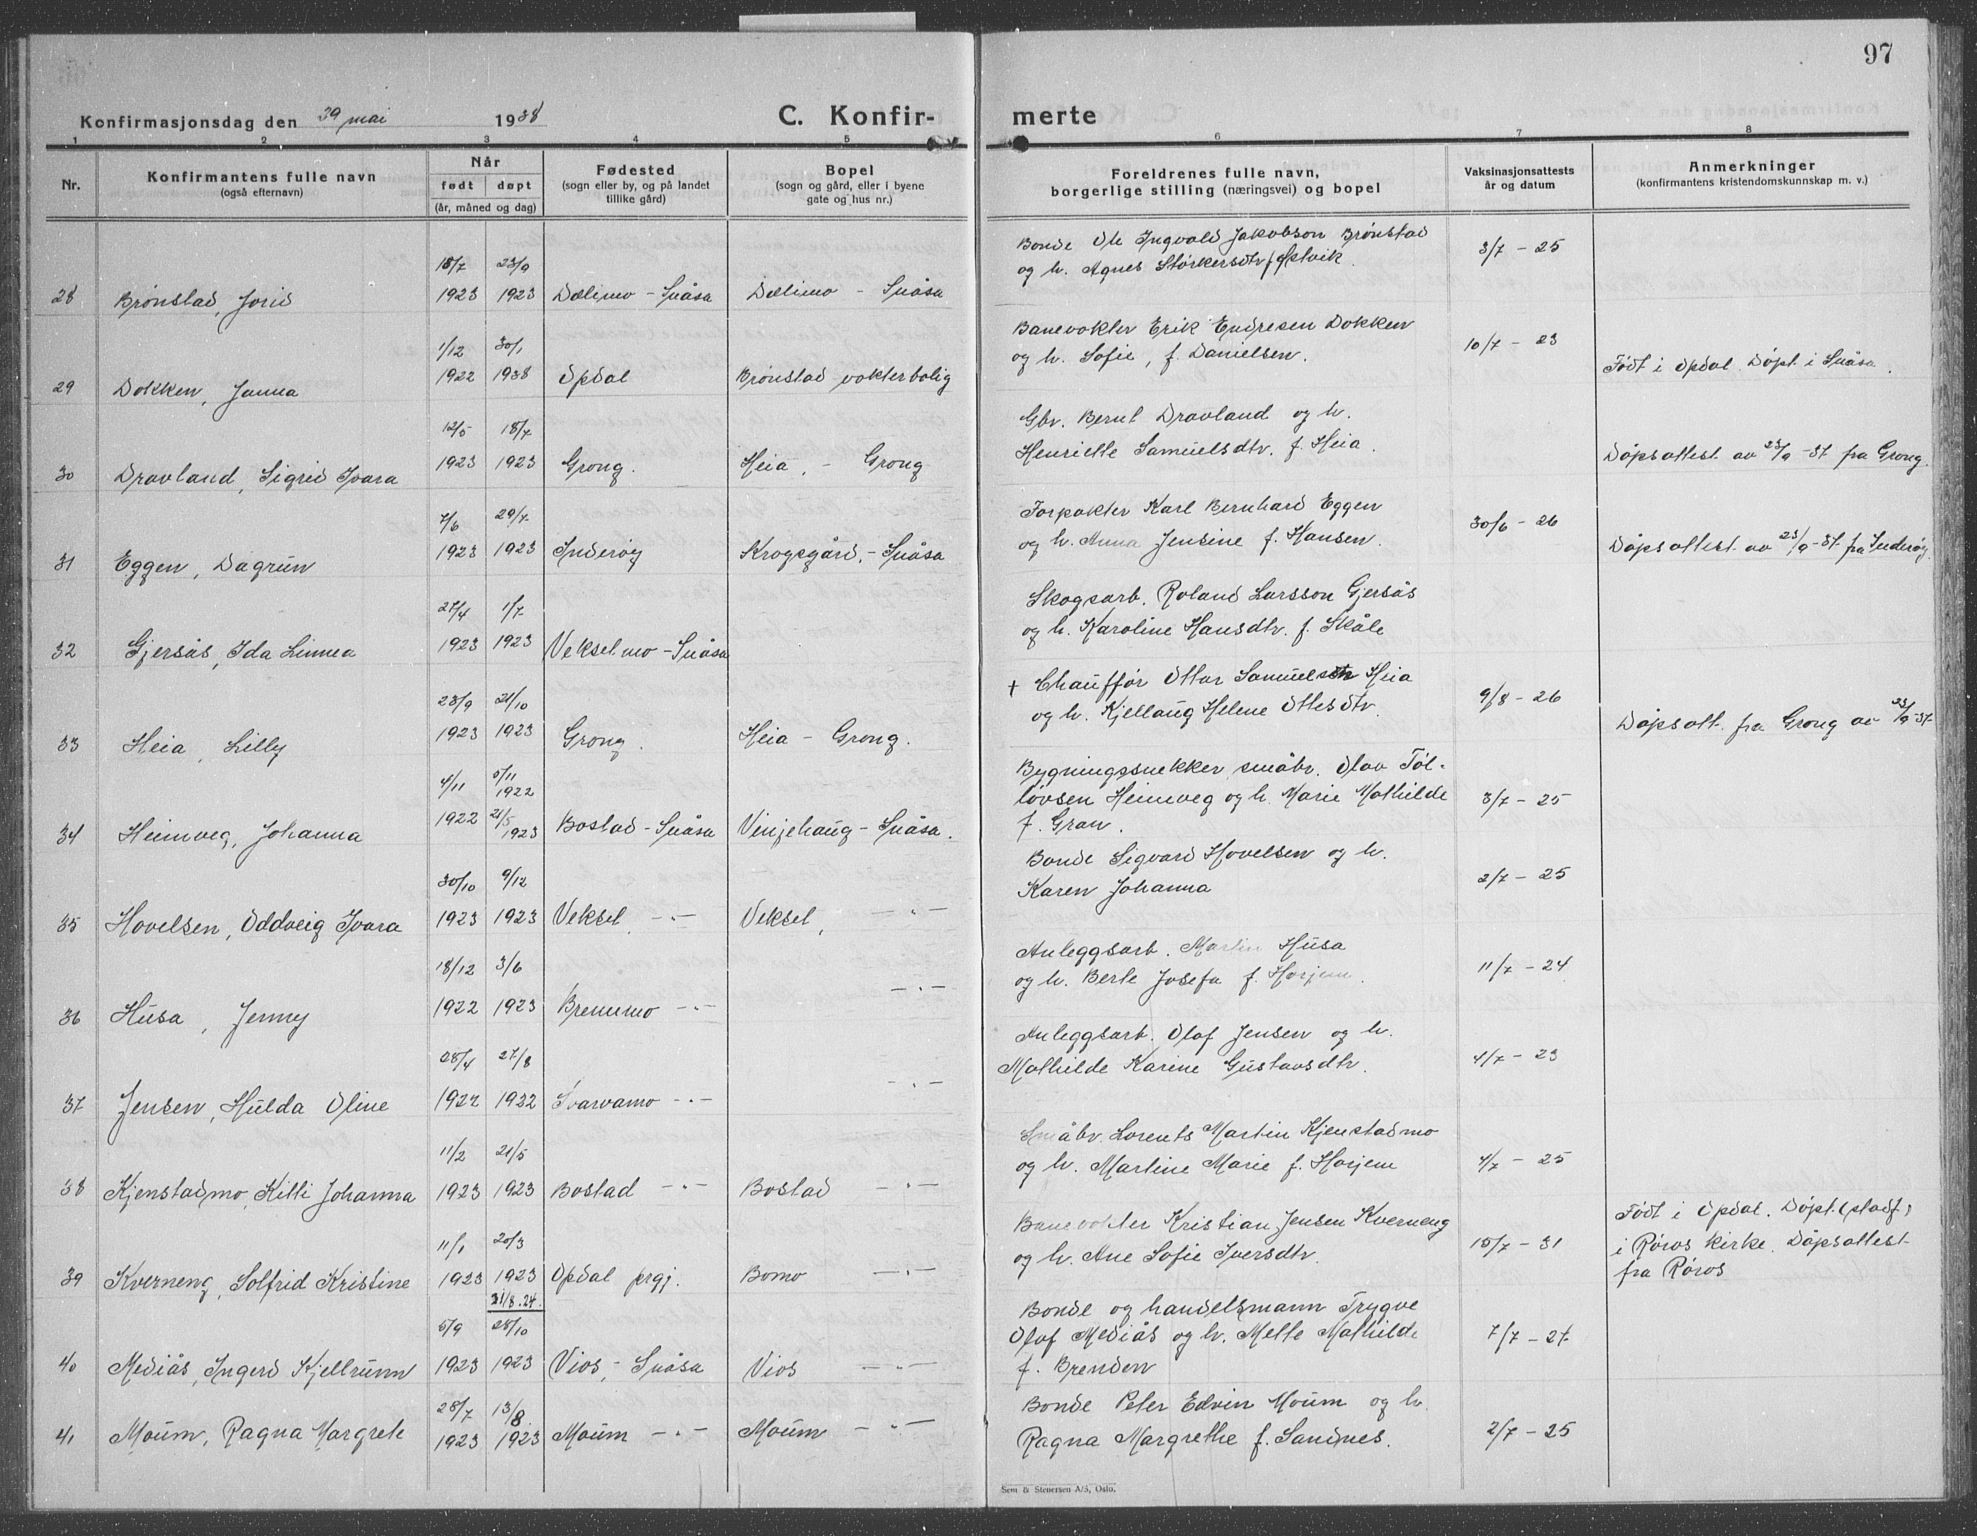 97
Konfirmasjonsdag den 29 mai 1938
C. Konfir-
merte
1 2 3 4 5 6 7 8
Nr.
Konfirmantens fulle navn
(også efternavn)
Når
født døpt
(år, måned og dag)
Fødested
(sogn eller by, og på landet
tillike gård)
Bopel
(sogn og gård, eller i byene
gate og hus nr.)
Foreldrenes fulle navn,
borgerlige stilling (næringsvei) og bopel
Vaksinasjonsattests
år og datum
Anmerkninger
(konfirmantens kristendomskunnskap m. v.)
Bonde Ole Ingvald Jakobson Brønstad
18/7 23/9
og h. Agnes Størkersdtr. f. Østvik.
3/7 - 25
28 Brønstad, Jorid 1923 1923 Dælimo - Snåsa Dælimo - Snåsa
Banevokter Erik Endresen Dokken
1/12 30/1
og h. Sofie, f. Danielsen.
10/7 - 23
29 Dokken, Janna 1922 1938 Opdal Brønstad vokterbolig
Født i Opdal. Døpt i Snåsa.
Gbr. Bernt Dravland og h.
12/5 18/7
Henriette Samuelsdtr. f. Heia.
30 Dravland, Sigrid Ivara 1923 1923 Grong. Heia, - Grong
Døpsattest av 23/9 - 37 fra Grong.
Forpakter Karl Bernhard Eggen
7/6 29/7
og h. Anna Jensine f. Hansen.
30/6 - 26
31 Eggen, Dagrun 1923 1923 Inderøy Krogsgård, - Snåsa
Døpsattest av 23/9 - 37 fra Inderøy
Skogsarb. Roland Larsson Gjersås
27/4 1/7
og h. Karoline Hansdtr. f. Skåle
32 Gjersås, Ida Linnea 1923 1923 Vekselmo - Snåsa
+ Chauffør Ottar Samuelsen Heia
23/9 21/10
og h. Kjellaug Helene Ottesdtr.
9/8 - 26
33 Heia, Lilly 1923 1923 Grong. Heia - Grong.
Døpsatt. fra Grong av 23/9 - 37.
Bygningssnekker, småbr. Olav Tøl-
4/11 5/11 1922
løvsen Heimveg og h. Marie Mathilde
3/7 - 25
f. Gran.
34 Heimveg, Johanna 1922 21/5 1923 Bostad - Snåsa Vinjehaug - Snåsa.
Bonde Sigvard Hovelsen og h.
30/10 9/12
Karen Johanna
2/7 - 25
35 Hovelsen, Oddveig Ivara 1923 1923 Veksel - " - Veksel, - " -
Anleggsarb. Martin Husa
18/12 3/6
og h. Berte Josefa f. Horjem.
11/7 - 24
36 Husa, Jenny 1922 1923 Bremmo - " - - " -
Anleggsarb. Olaf Jensen og h.
28/4 27/8
Mathilde Karine Gustavsdtr.
4/7 - 23
37 Jensen, Hulda Oline 1922 1922 Svarvamo - " - - " -
Småbr. Lorents Martin Kjenstadmo
11/2 21/5
og h. Martine Marie f. Horjem
4/7 - 25
38 Kjenstadmo, Kitti Johanna 1923 1923 Bostad - " - Bostad - " -
Banevokter Kristian Jensen Kverneng
11/1 20/3
og h. Ane Sofie Iversdtr.
15/7 - 31
Født i Opdal. Døpt (stadf.)
i Røros kirke. Døpsattest
fra Røros
39 Kverneng, Solfrid Kristine 1923 1923 Opdal prgj. Bomo - " -
31/8.24.
Bonde og handelsmann Trygve
5/9 28/10
Olaf Mediås og h. Mette Mathilde
7/7 - 27.
f. Brenden
40 Mediås, Ingerd Kjellrunn 1923 1923 Vios, - Snåsa Vios - " -
Bonde Peter Edvin Moum og h.
28/7 13/8.
Ragna Margrethe f. Sandnes.
2/7 - 25
41 Moum, Ragna Margrete 1923 1923 Moum - " - Moum - " -
Sem & Stenersen A/S, Oslo.